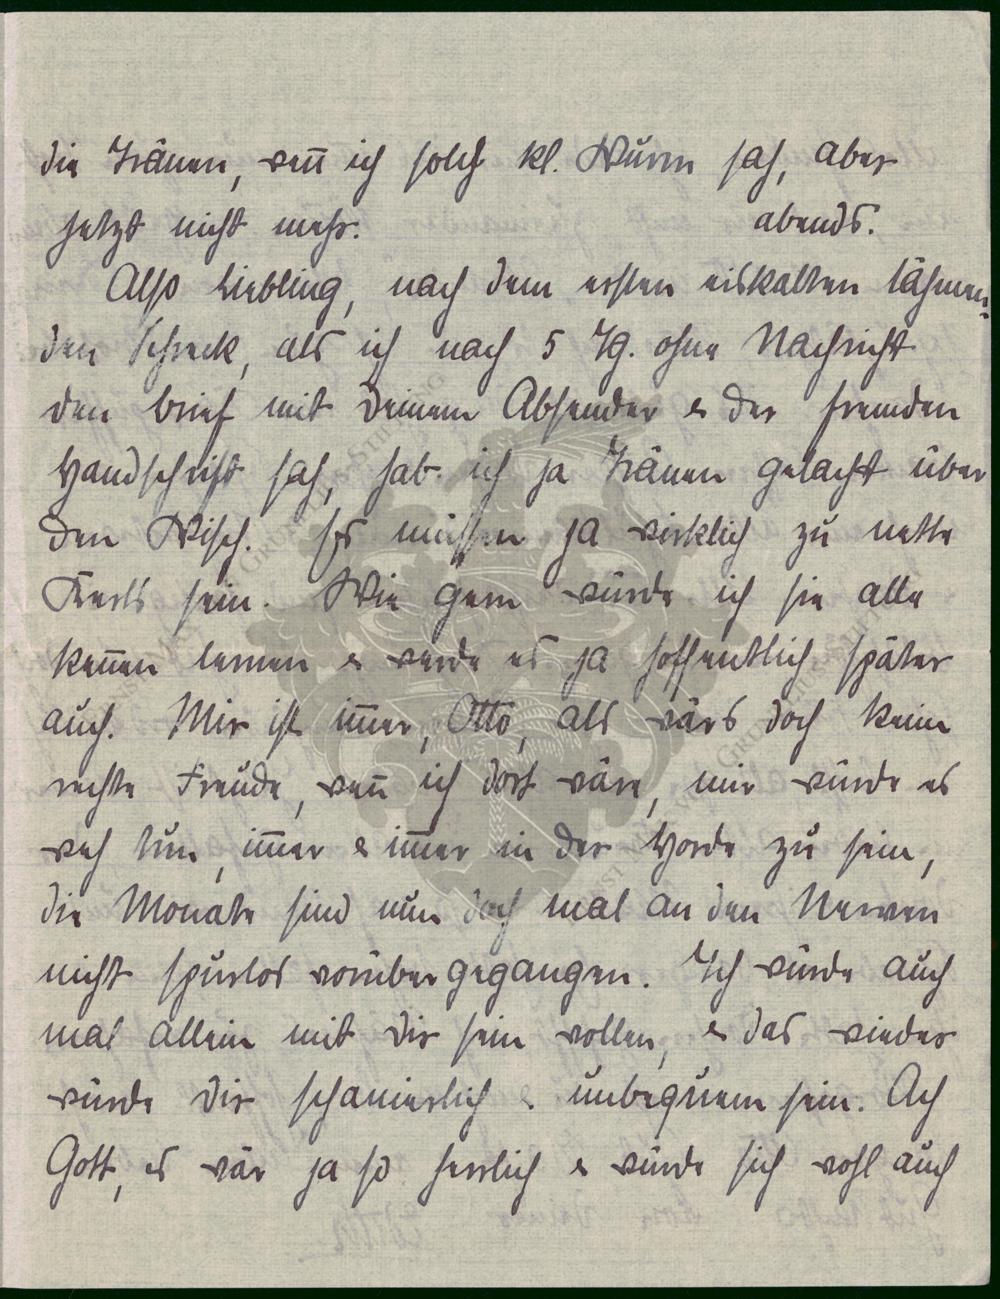 die Tränen, wen̅ ich solch kl. Wurm sah, aber
jetzt nicht mehr. abends.
Also Liebling, nach dem ersten eiskalten lähmen-
den Schreck, als ich nach 5 Tg. ohne Nachricht
den Brief mit Deinem Absender & der fremden
Handschrift sah, hab ich ja Tränen gelacht über
den Wisch. Es müssen ja wirklich zu nette
Kerls sein. Wie gern würde ich sie alle
ken̅en lernen & werde es ja hoffentlich später
auch. Mir ist im̅er, Otto, als wärs doch keine
rechte Freude, wen̅ ich dort wäre, mir würde es
weh tun, im̅er & im̅er in der Horde zu sein,
die Monate sind nun doch mal an den Nerven
nicht spurlos vorübergegangen. Ich würde auch
mal allein mit Dir sein wollen, & das wieder
würde Dir schanierlich & unbequem sein. Ach
Gott, es wär ja so herrlich & würde sich wohl auch